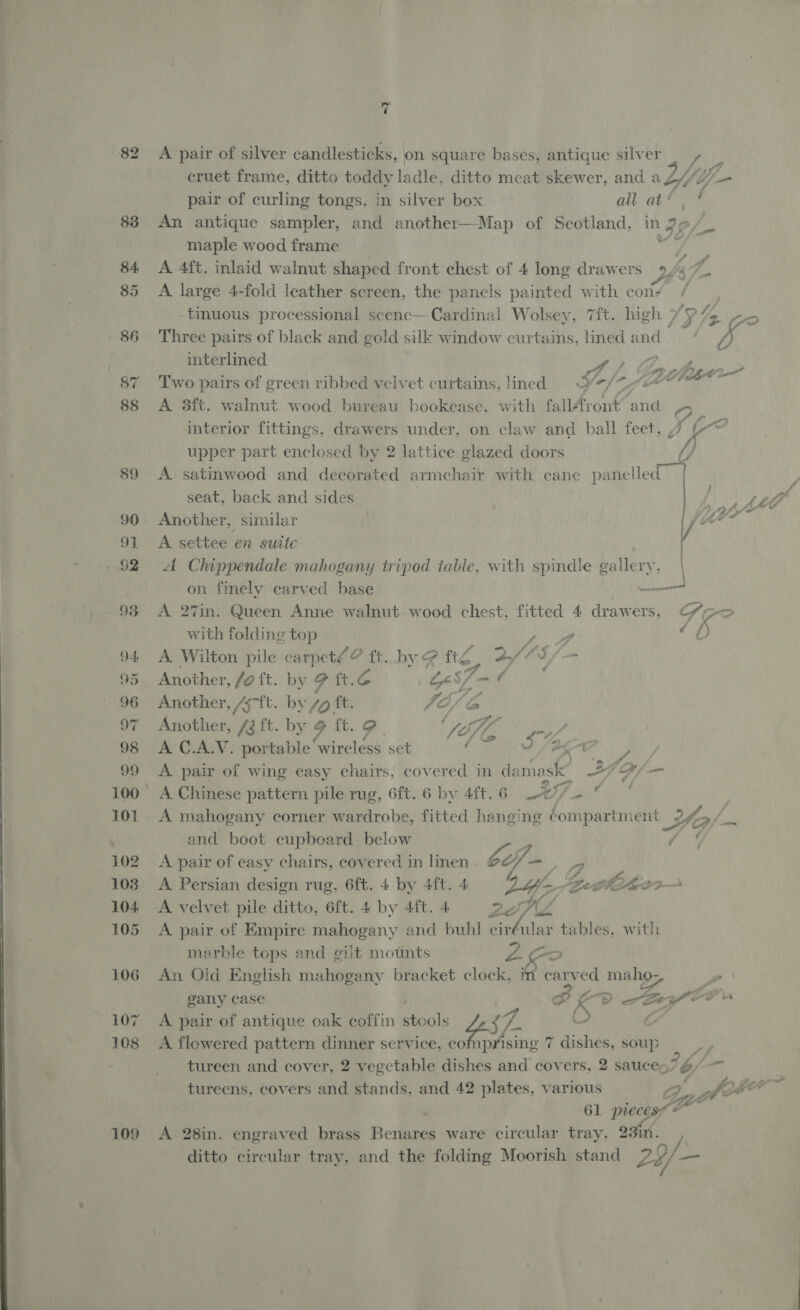 7
82 A pair of silver candlesticks, on square bases, antique silver
cruet frame, ditto toddy ladle, ditto meat skewer, and a
pair of curling tongs, in silver box all at
83 An antique sampler, and another—Map of Scotland, in
maple wood frame
84 A 4ft. inlaid walnut shaped front chest of 4 long drawers
85 A large 4-fold leather screen, the panels painted with con-
tinuous processional scene—Cardinal Wolsey, 7ft. high
86 Three pairs of black and gold silk window curtains, lined and
interlined
87 Two pairs of green ribbed velvet curtains, lined
88 A 3ft. walnut wood bureau bookcase, with fall-front and
interior fittings, drawers under, on claw and ball feet,
upper part enclosed by 2 lattice glazed doors
89 A satinwood and decorated armchair with cane panelled
seat, back and sides
90 Another, similar
91 A settee en suite
92 A Chippendale mahogany tripod table, with spindle gallery,
on finely carved base
93 A 27in. Queen Anne walnut wood chest, fitted 4 drawers,
with folding top
94 A Wilton pile carpet ft. by 9 ft
95 Another, ft. by 9 ft. 6
96 Another, ft. by ft.
97 Another, ft. by 9 ft. 9
98 A C.A.V. portable wireless set
99 A pair of wing easy chairs, covered in damask
100 A Chinese pattern pile rug, 6ft. 6 by 4ft. 6
101 A mahogany corner wardrobe, fitted hanging compartment
and boot cupboard below
102 A pair of easy chairs, covered in linen
103 A Persian design rug, 6ft. 4 by 4ft. 4
104 A velvet pile ditto, 6ft. 4 by 4ft. 4
105 A pair of Empire mahogany and buhl circular tables, with
marble tops and gilt mounts
106 An Old English mahogany bracket clock, in carved maho-
gany case
107 A pair of antique oak coffin stools
108 A flowered pattern dinner service, comprising 7 dishes, soup
tureen and cover, 2 vegetable dishes and covers, 2 sauce
tureens, covers and stands, and 42 plates, various
61 pieces
109 A 28in. engraved brass Benares ware circular tray, 23in.
ditto circular tray, and the folding Moorish stand